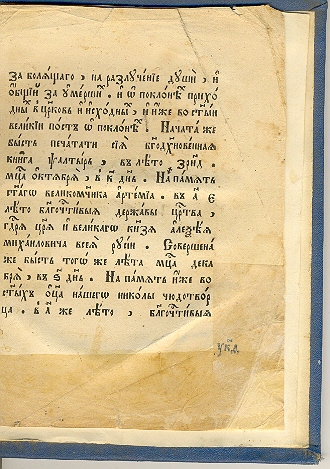 за болѧщаго , на разлꙋченїе дꙋши , и҆
ѻ҆бщїи за ꙋ҆мершїѧ . и҆ ѡ҆ поклонѣⷯ прихо
дныⷯ в црковь и҆ исходныⷯ , и҆ иже во ст҃ыи
великїи постъ ѡ҆ поклонѣⷯ . Начата же
бысть печатати сїѧ бг҃одⷯновеннаѧ
книга ѱалтырь , въ лѣто зр҃нд .
мц҃а октѧбрѧ , въ к҃ дн҃ь . На памѧть
ст҃агѡ великомчн҃ка а҆ртемїа . въ а҃ е
лѣто бл҃гочтⷭ҇ивыѧ державы црⷭ҇тва ,
гдⷭ҇рѧ цр҃ѧ и҆ великагѡ кн҃зѧ алеѯѣѧ
михаиловича всеѧ рꙋсїи . Совершена
же бысть тогѡ же лѣта мц҃а дека
брѧ , въ ѕ҃ дн҃ь . На памѧть иже во
ст҃ыхъ ѻ҆ц҃а нашегѡ николы чюдотвор
ца . в а҃ же лѣто , бл҃гочтⷭ҇ивыѧ